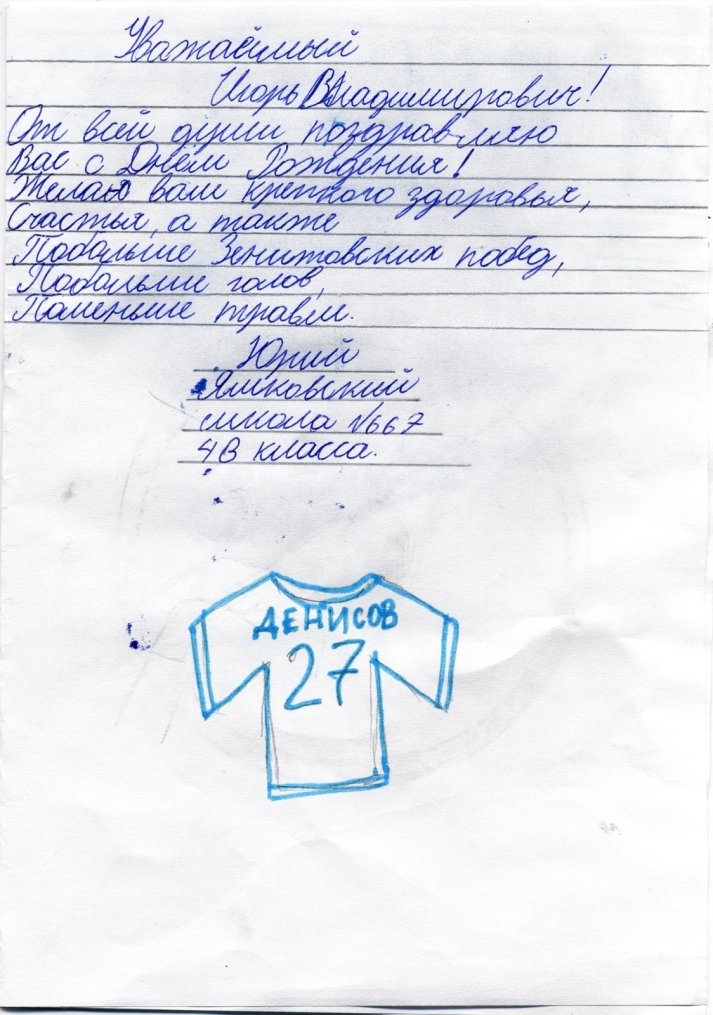 Уважаемый
Игорь Владимирович!
От всей души поздравляю
Вас с Днём Рождения!
Желаю вам крепкого здоровья,
Счастья, а также
Побольше Зенитовских побед,
Побольше голов,
Поменьше травм.
Юрий
Ямковский
школа №667
4В класса.
ДЕНИСОВ
27